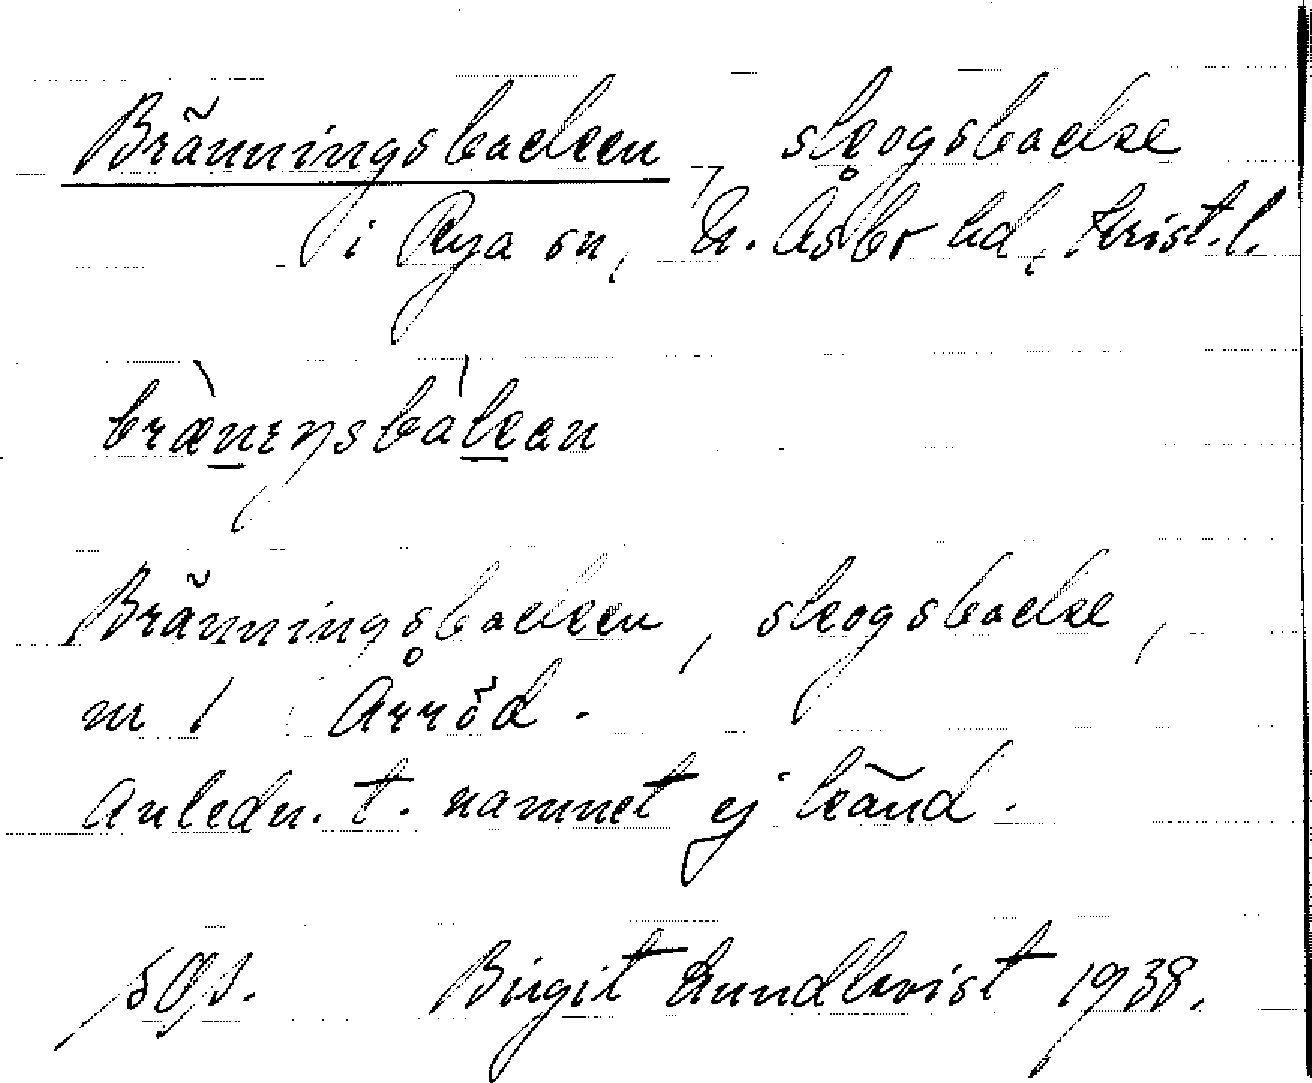 Bränningsbacken, skogsbacke
i Rya sn, N. Åsbo hd, Krist. l.
brænıŋsbàkan
Bränningsbacken, skogsbacke,
nr 1 Årröd.
Anledn. t. namnet ej känd.
Birgit Lundkvist 1938.